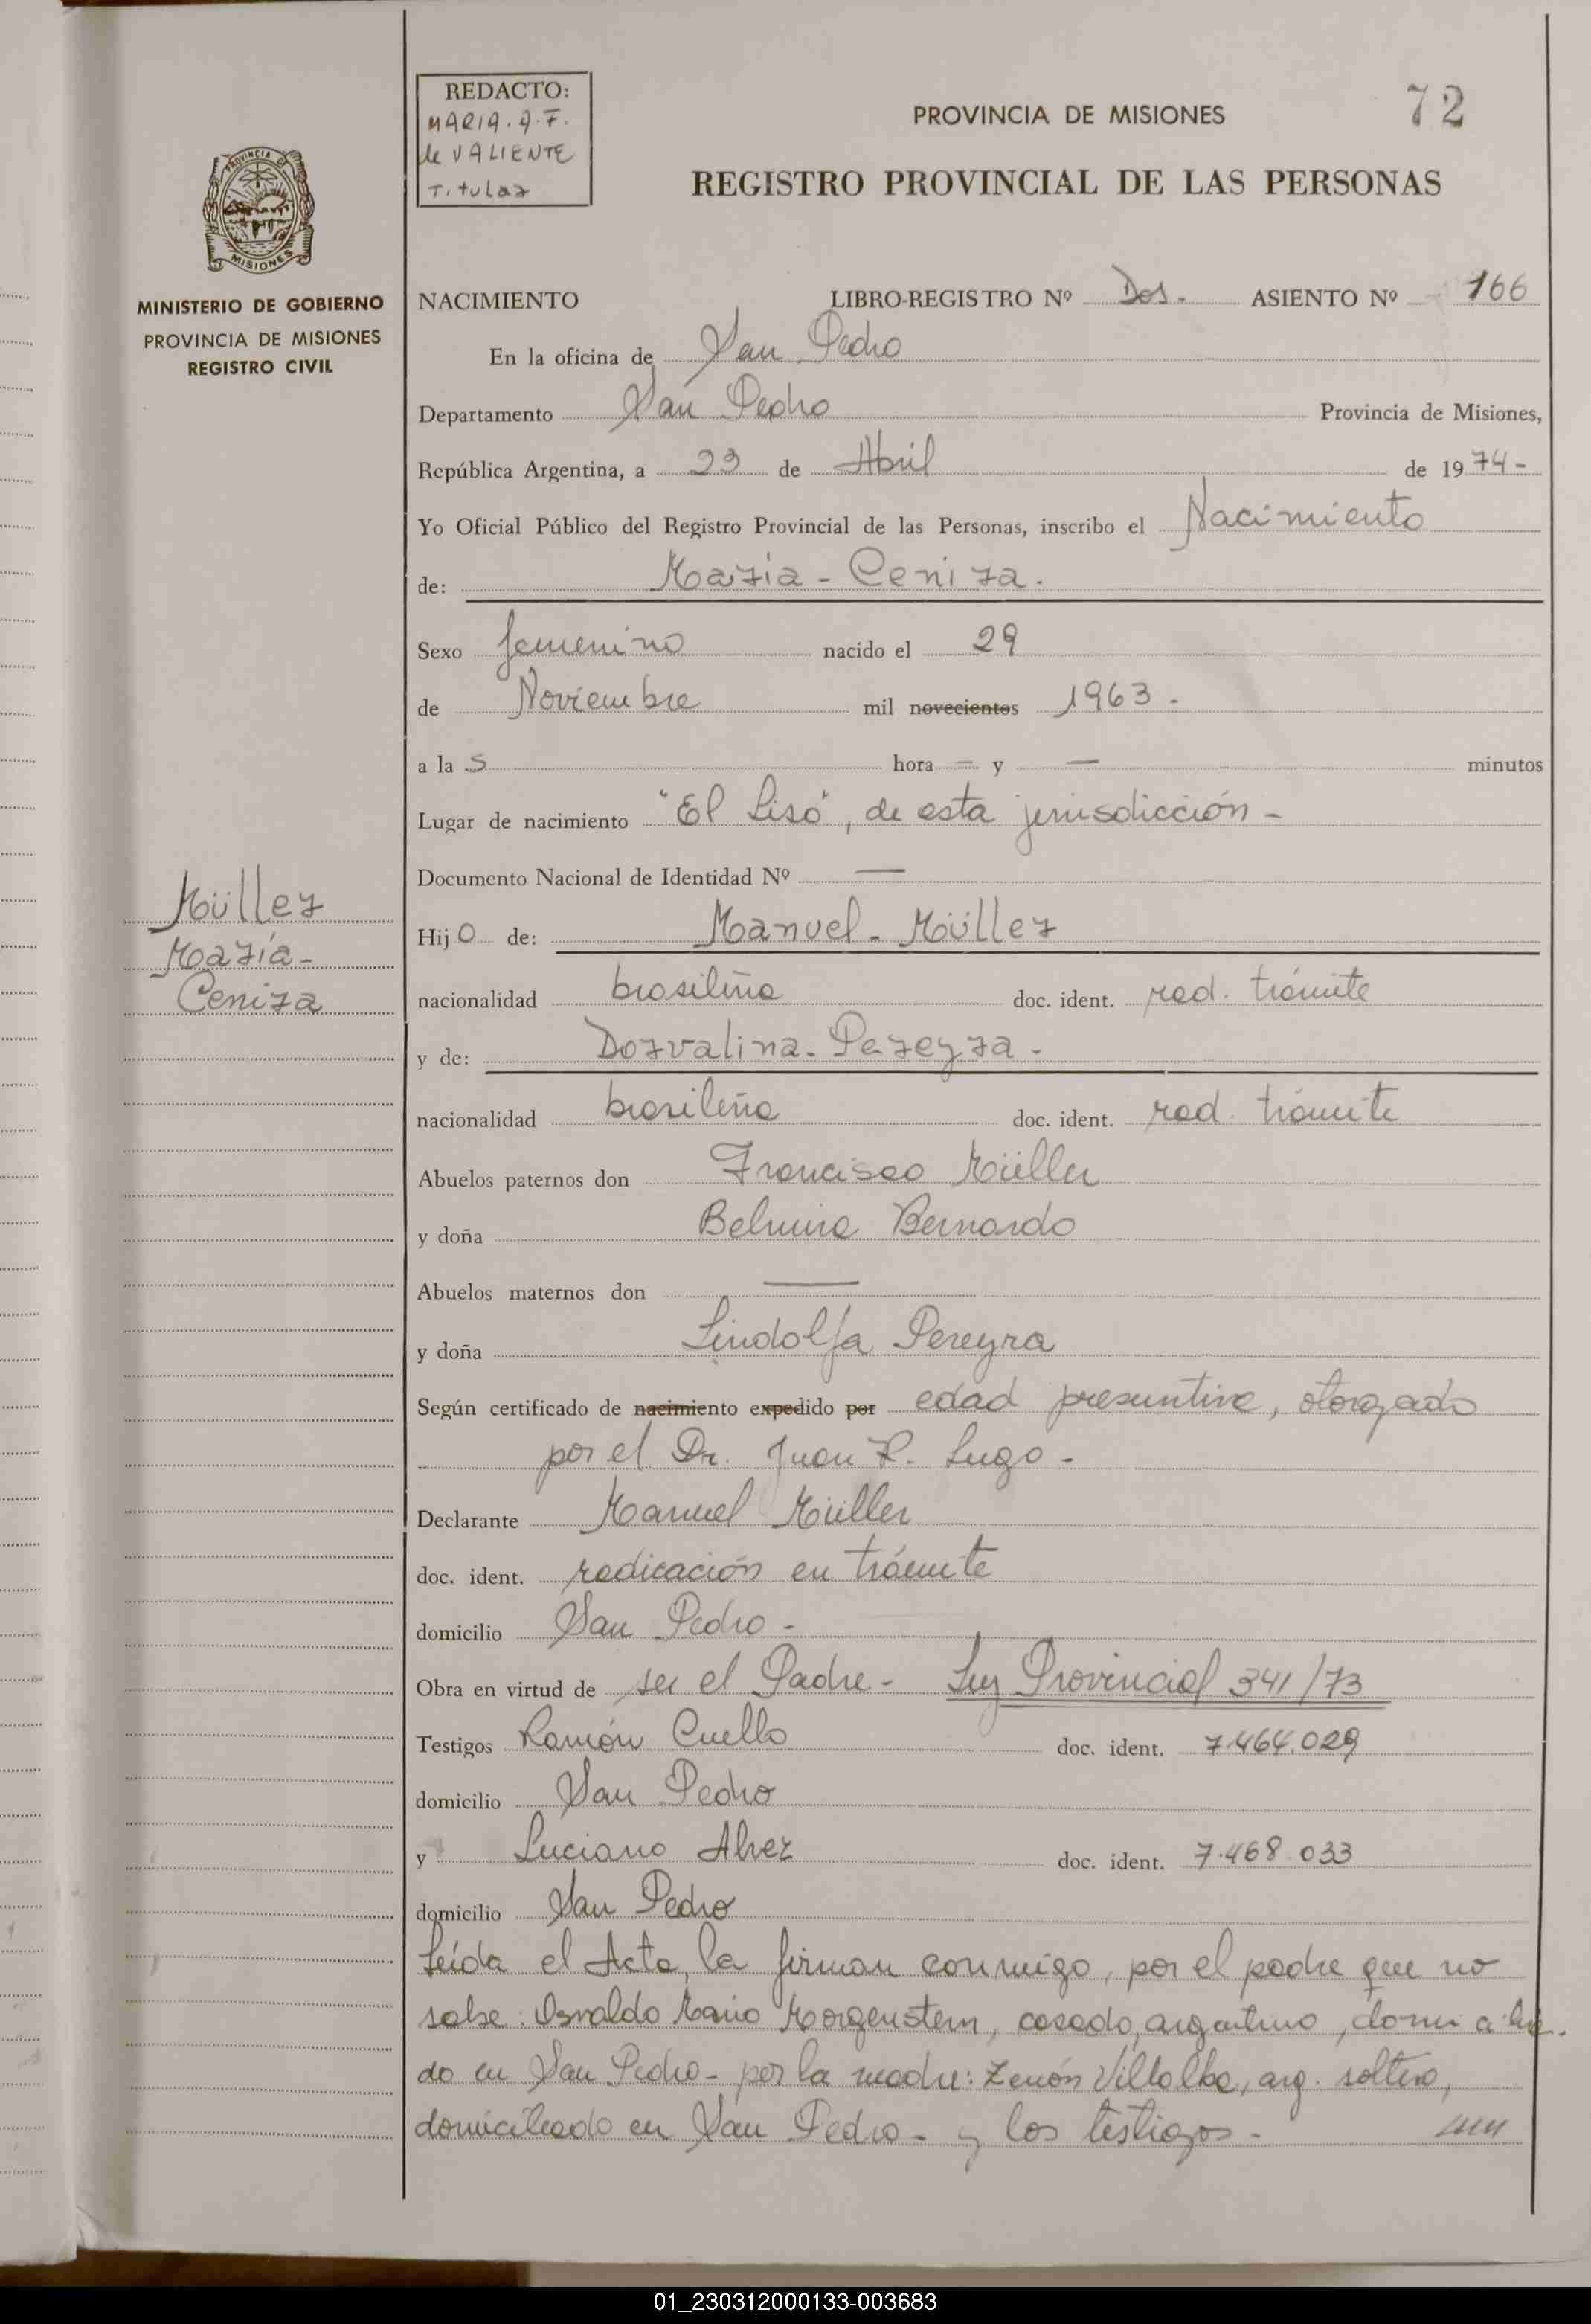 REDACTO:
MARIA.A.F.
de VALIENTE
Titular
PROVINCIA DE MISIONES
72
REGISTRO PROVINCIAL DE LAS PERSONAS
PROVINCIA DE
MISIONES
MINISTERIO DE GOBIERNO
PROVINCIA DE MISIONES
REGISTRO CIVIL
NACIMIENTO LIBRO-REGISTRO Nº Dos.- ASIENTO Nº 166
En la oficina de San Pedro
Departamento San Pedro Provincia de Misiones,
República Argentina, a 23 de Abril de 1974-
Yo Oficial Público del Registro Provincial de las Personas, inscribo el Nacimiento
de: María - Ceniza.
Sexo femenino nacido el 29
de Noviembre mil novecientos 1963-
a la s hora — y — minutos
Lugar de nacimiento "El Liso", de esta jurisdicción -
Documento Nacional de Identidad Nº —
Müller
María-
Ceniza
Hijo de: Manuel - Müller
nacionalidad brasileña doc. ident. rad. trámite
y de: Dorvalina - Pereyra -
nacionalidad brasileña doc. ident. rad. trámite
Abuelos paternos don Francisco Müller
y doña Belmira Bernardo
Abuelos maternos don —
y doña Lindolfa Pereyra
Según certificado de nacimiento expedido por edad presuntiva, otorgado
por el Dr. Juan R. Lugo -
Declarante Manuel Müller
doc. ident. radicación en trámite
domicilio San Pedro -
Obra en virtud de ser el Padre - Ley Provincial 341/73
Testigos Ramón Cuello doc. ident. 7.464.029
domicilio San Pedro
y Luciano Alvez doc. ident. 7.468.033
domicilio San Pedro
Leída el Acta, la firman conmigo, por el padre que no
sabe: Osvaldo Mario Morgenstern, casado, argentino, domicilia-
do en San Pedro - por la madre: Zenón Villalba, arg. soltero,
domiciliado en San Pedro - y los testigos -
01_230312000133-003683